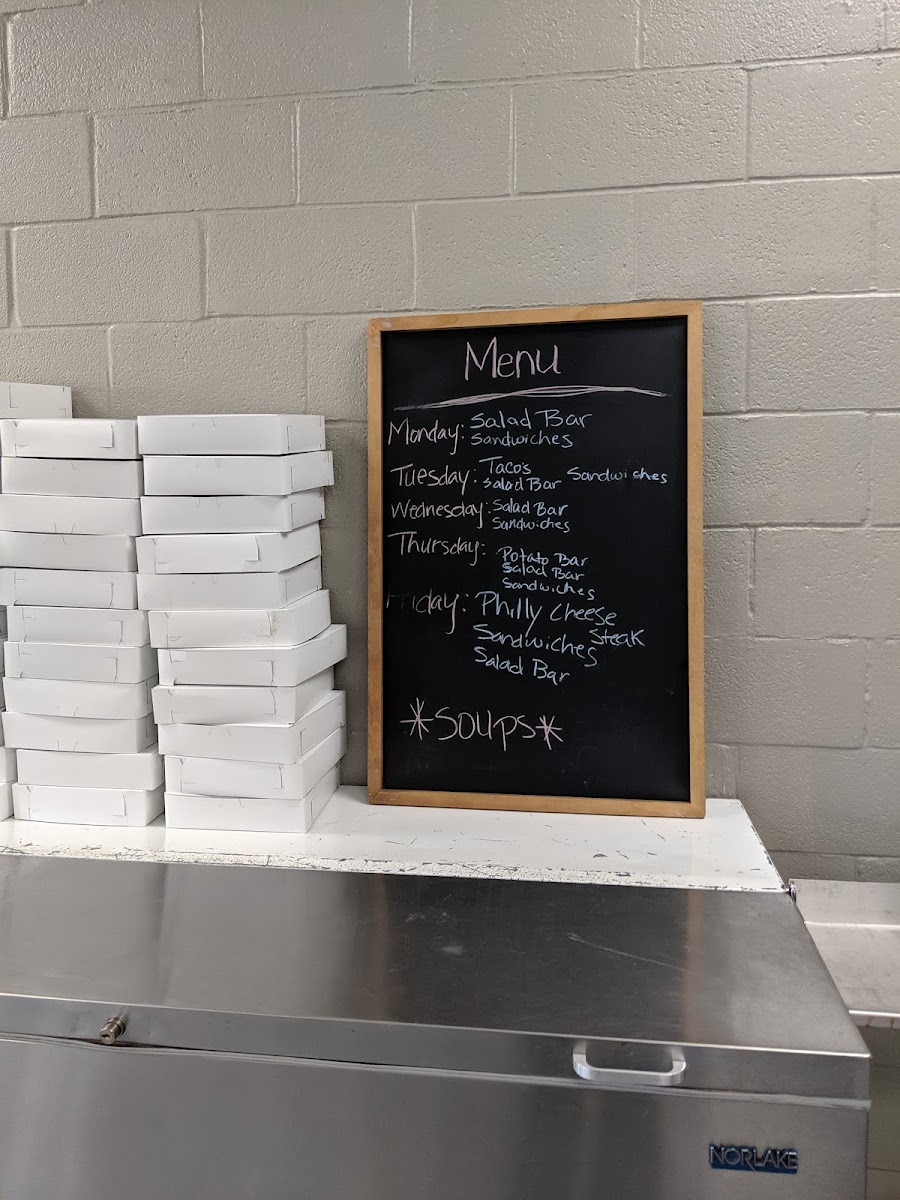 Menu
Monday: Salad Bar
Sandwiches
Tuesday: Tacos
Salad Bar Sandwiches
Wednesday: Salad Bar
Sandwiches
Thursday: Potato Bar
Salad Bar
Sandwiches
Friday: Philly Cheese
Steak
Sandwiches
Salad Bar
*Soups*
NORLAKE